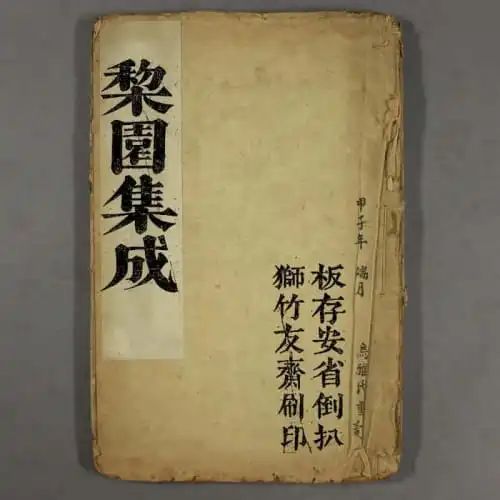 甲子年 端月
板存安省倒扒
獅竹友齋刷印
棃園集成